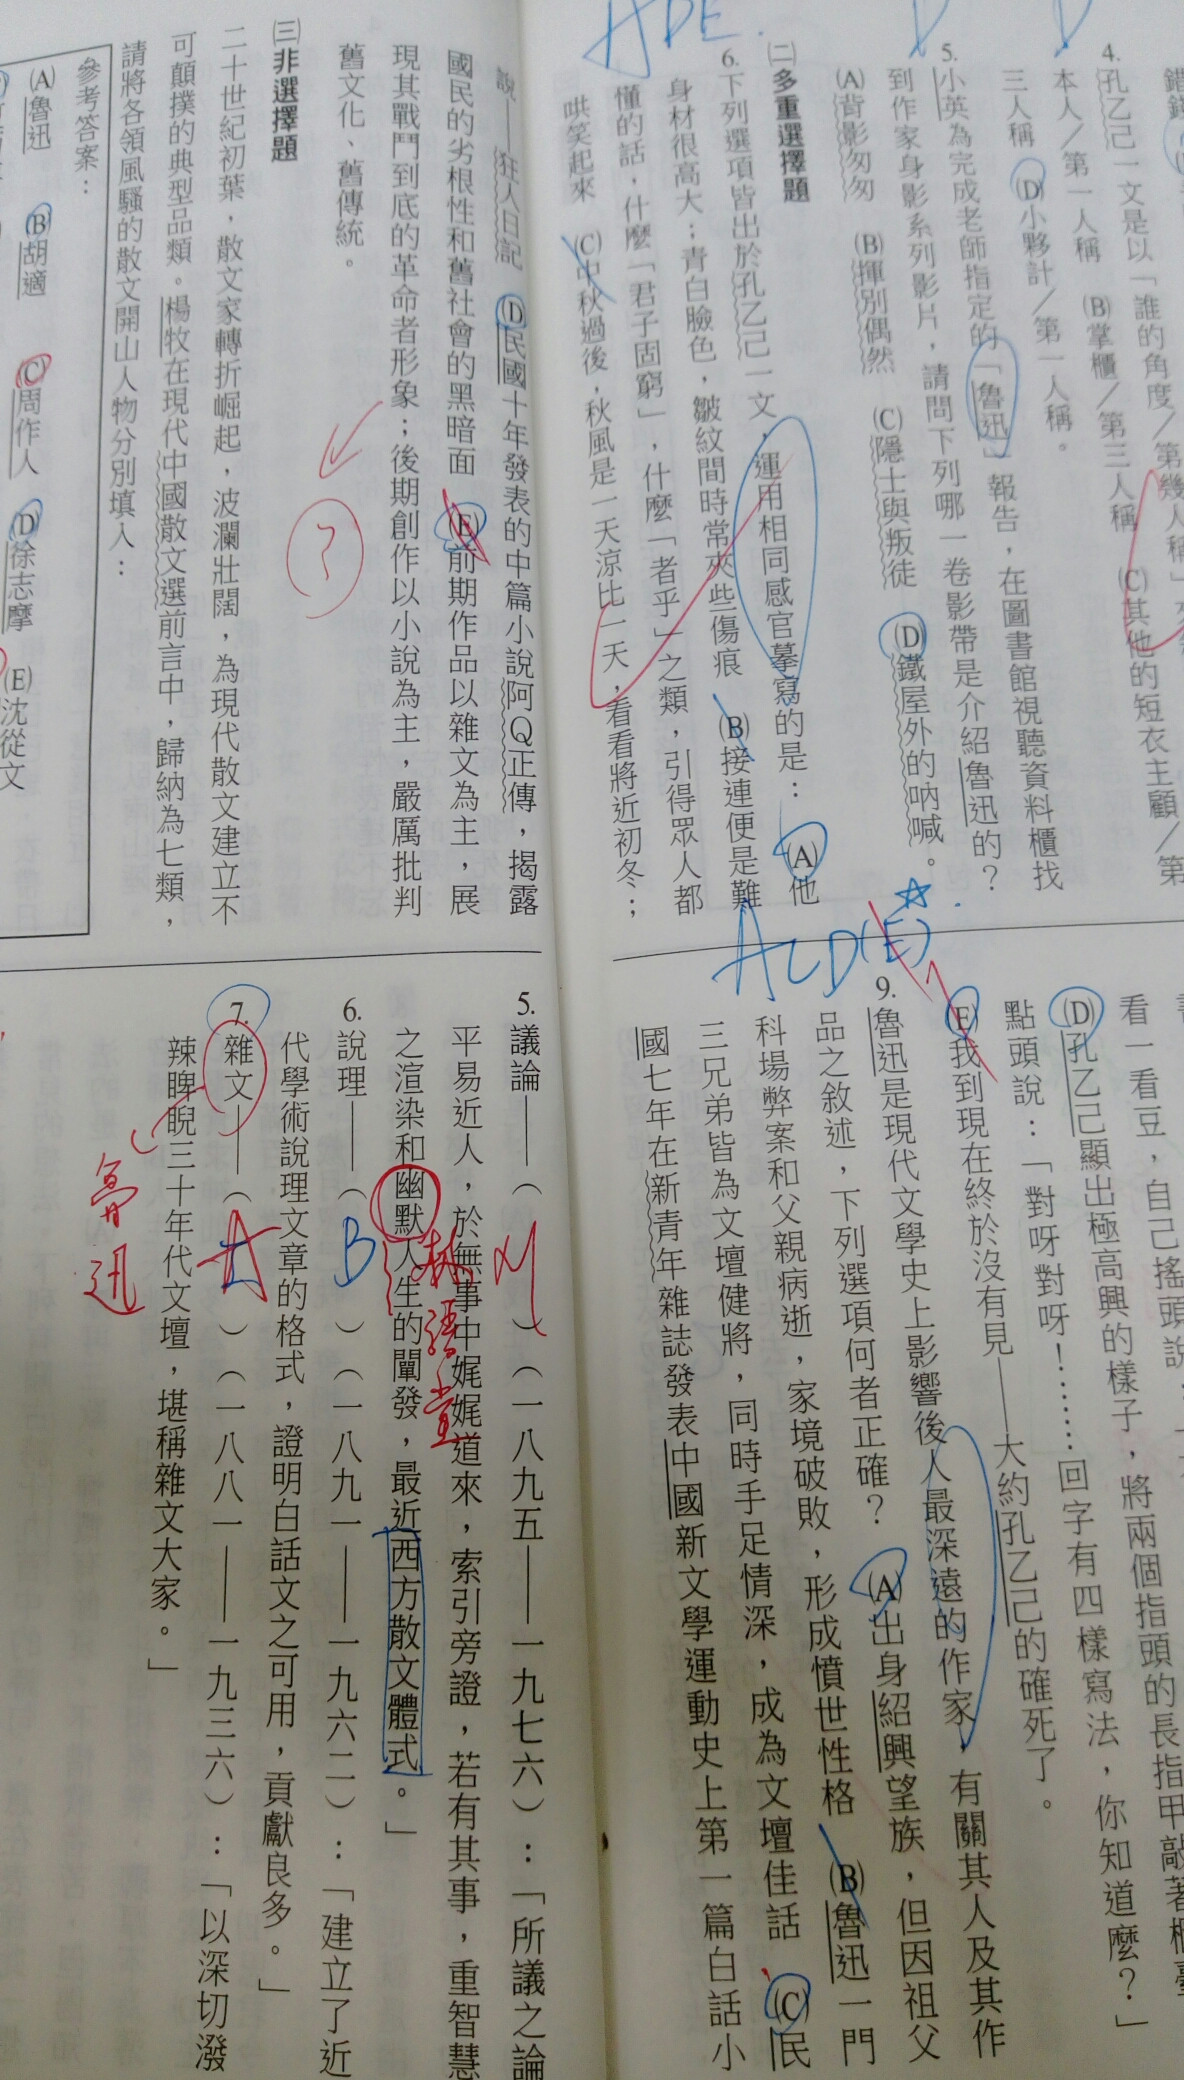 4. 孔乙己一文是以「誰的角度/第幾人稱」
本人/第一人稱 (B)掌櫃/第三人稱 (C)其他的短衣主顧/第
三人稱 (D)小夥計/第一人稱。
5. 小英為完成老師指定的「魯迅」報告，在圖書館視聽資料櫃找
到作家身影系列影片，請問下列哪一卷影帶是介紹魯迅的？
(A)背影匆匆 (B)揮別偶然 (C)隱士與叛徒 (D)鐵屋外的吶喊。
D
D
㈡多重選擇題
6. 下列選項皆出於孔乙己一文，運用相同感官摹寫的是： (A)他
身材很高大；青白臉色，皺紋間時常夾些傷痕 (B)接連便是難
懂的話，什麼「君子固窮」，什麼「者乎」之類，引得眾人都
哄笑起來 (C)中秋過後，秋風是一天涼比一天，看看將近初冬；
ADE.
看一看豆，自己搖頭說
(D)孔乙己顯出極高興的樣子，將兩個指頭的長指甲敲著櫃臺
點頭說：「對呀對呀！……回字有四樣寫法，你知道麼？」
(E)我到現在終於沒有見——大約孔乙己的確死了。
9. 魯迅是現代文學史上影響後人最深遠的作家，有關其人及其作
品之敘述，下列選項何者正確？ (A)出身紹興望族，但因祖父
科場弊案和父親病逝，家境破敗，形成憤世性格 (B)魯迅一門
三兄弟皆為文壇健將，同時手足情深，成為文壇佳話 (C)民
國七年在新青年雜誌發表中國新文學運動史上第一篇白話小
ACD(E)
說——狂人日記 (D)民國十年發表的中篇小說阿Q正傳，揭露
國民的劣根性和舊社會的黑暗面 (E)前期作品以雜文為主，展
現其戰鬥到底的革命者形象；後期創作以小說為主，嚴厲批判
舊文化、舊傳統。
㈢非選擇題
二十世紀初葉，散文家轉折崛起，波瀾壯闊，為現代散文建立不
可顛撲的典型品類。楊牧在現代中國散文選前言中，歸納為七類，
請將各領風騷的散文開山人物分別填入：
參考答案：
(A)魯迅 (B)胡適 (C)周作人 (D)徐志摩 (E)沈從文
5. 議論——（ ）（一八九五——一九七六）：「所議之論
平易近人，於無事中娓娓道來，索引旁證，若有其事，重智慧
之渲染和幽默人生的闡發，最近西方散文體式。」
林語堂
6. 說理——（ B ）（一八九一——一九六二）：「建立了近
代學術說理文章的格式，證明白話文之可用，貢獻良多。」
7. 雜文——（ A ）（一八八一——一九三六）：「以深切潑
辣睥睨三十年代文壇，堪稱雜文大家。」
魯迅